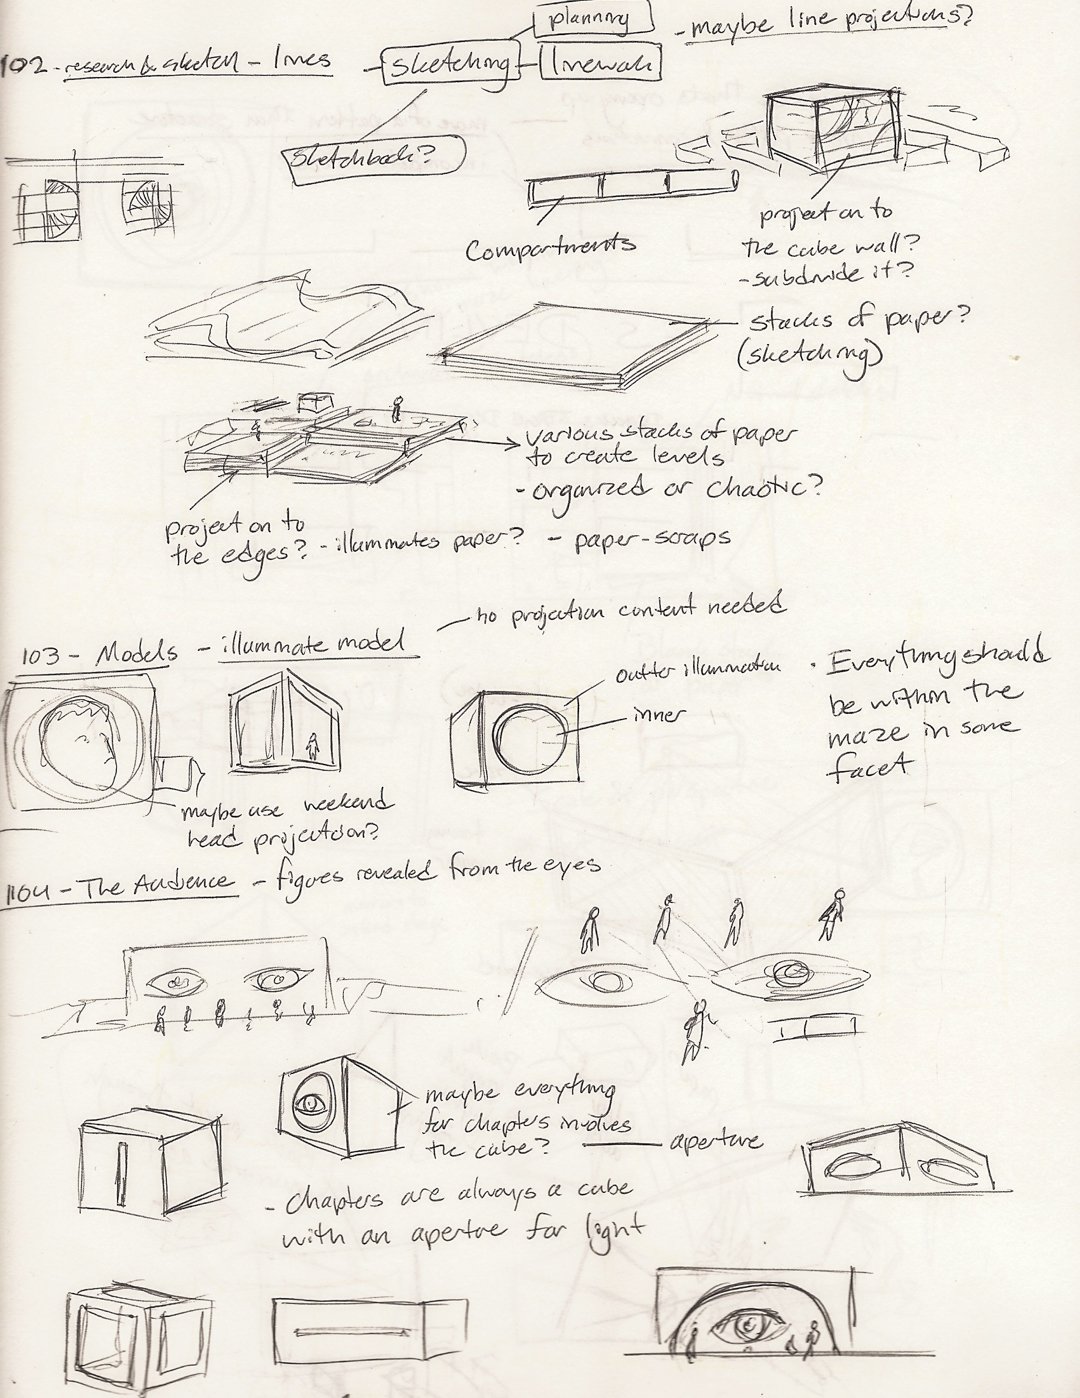 planning
- maybe line projections?
102 - research & sketch - lines
sketching
linework
sketchbook?
Compartments
project on to
the cube wall?
- subdivide it?
stacks of paper?
(sketching)
various stacks of paper
to create levels
- organized or chaotic?
project on to
the edges? - illuminates paper? - paper-scraps
no projection content needed
103 - Models - illuminate model
outter illumination
inner
· Everything should
be within the
maze in some
facet
maybe use weekend
head projection?
104 - The Audience - figures revealed from the eyes
maybe everything
for chapters involves
the cube?
aperture
- chapters are always a cube
with an aperture for light